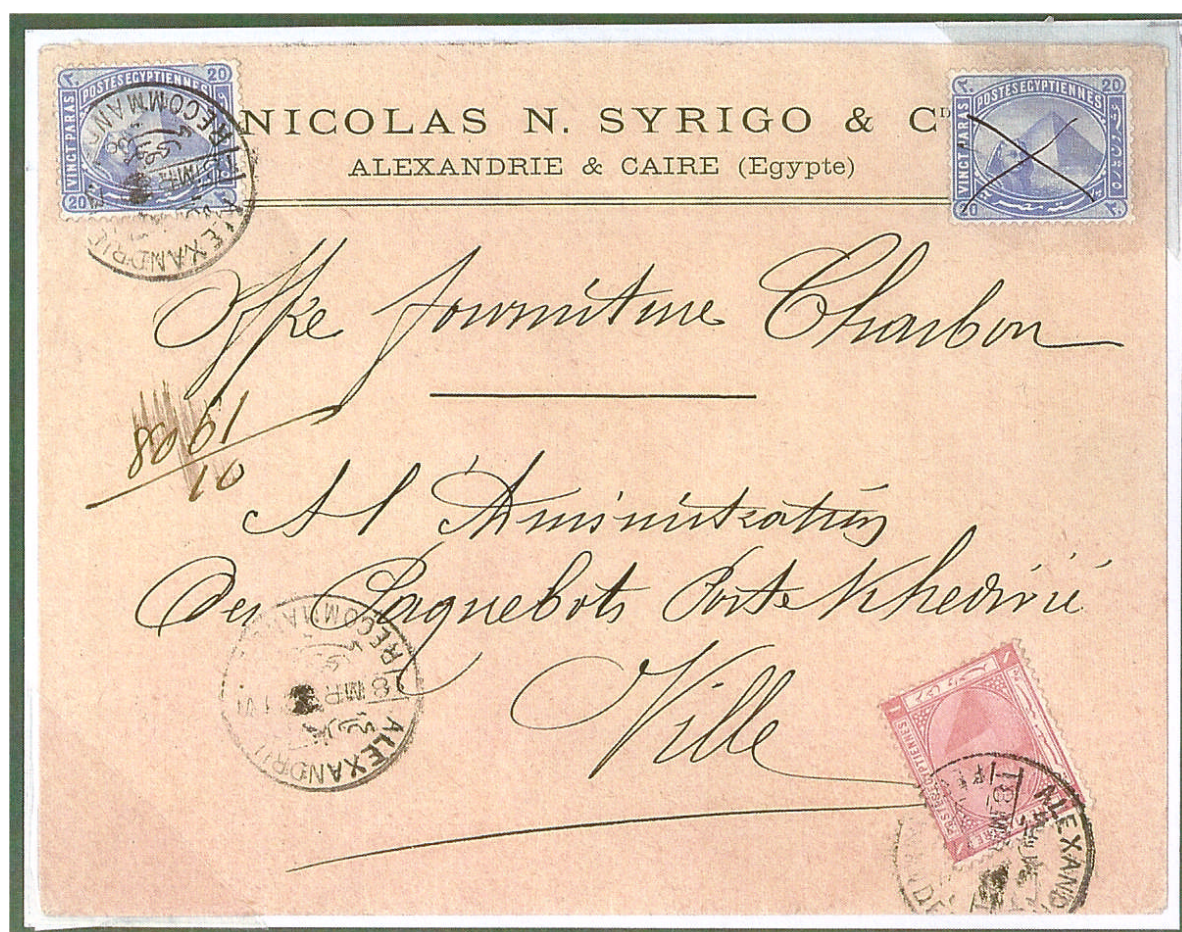 NICOLAS N. SYRIGO & C
ALEXANDRIE & CAIRE (Egypte)
٢٠ 20
POSTES EGYPTIENNES
VINGT PARAS
20
RECOMMAND
ALEXANDRIE
٢٠ 20
POSTES EGYPTIENNES
VINGT PARAS
20 ٢٠
Offre fourniture Charbon
8061
10
A l'Administration
des Paquebots Poste Khedivié
Ville
RECOMMAND
18 MR
ALEXANDRIE
POSTES EGYPTIENNES
1
ALEXAND
18 M